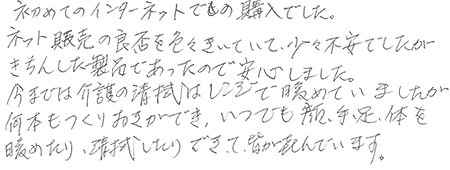 初めてのインターネットでの購入でした。
ネット販売の良否を色々きいていて、少々不安でしたが
きちんした製品であったので安心しました。
今までは介護の清拭はレンジで暖めていましたが
何本もつくりおきができ、いつでも顔、手、足、体を
暖めたり、清拭したりできて、皆が喜んでいます。